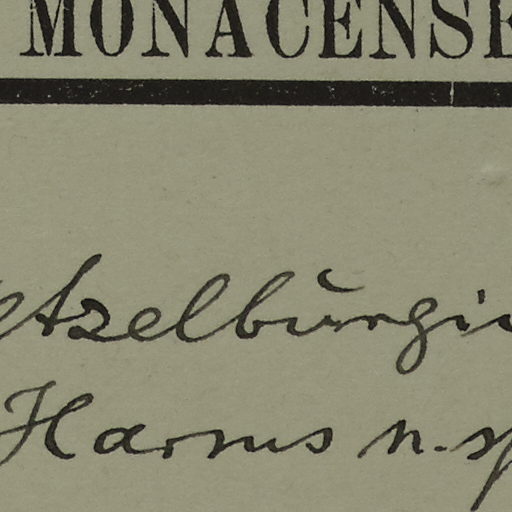 MONACENSE
etzelbŭrgi
Harms n. sp